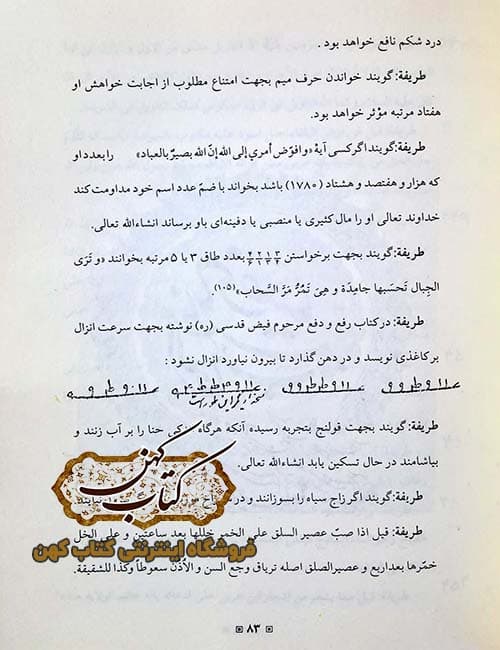 درد شکم نافع خواهد بود .
طریفة: گویند خواندن حرف میم بجهت امتناع مطلوب از اجابت خواهش او
هفتاد مرتبه مؤثر خواهد بود.
طریفة: گویند اگر کسی آیۀ «وافوّض أمري إلی الله إنّ الله بصیرٌ بالعباد» را بعدد او
که هزار و هفتصد و هشتاد (۱۷۸۰) باشد بخواند با ضمّ عدد اسم خود مداومت کند
خداوند تعالی او را مال کثیری یا منصبی یا دفینه‌ای باو برساند انشاءالله تعالی.
طریفة: گویند بجهت برخواستن بعدد طاق ۳ یا ۵ مرتبه بخوانند «و تَرَی
الجِبال تَحسَبها جامِدَة و هِیَ تَمُرُّ مَرَّ السَّحاب»(۱۰۵).
طریفة: در کتاب رفع و دفع مرحوم فیض قدسی (ره) نوشته بجهت سرعت انزال
بر کاغذی نویسد و در دهن گذارد تا بیرون نیاورد انزال نشود :
طریفة: گویند بجهت قولنج بتجربه رسیده آنکه هرگاه حنا را بر آب زنند و
بیاشامند در حال تسکین یابد انشاءالله تعالی.
طریفة: گویند اگر زاج سیاه را بسوزانند و در
کتاب کهن
فروشگاه اینترنتی کتاب کهن
طریفة: قیل اذا صبّ عصیر السلق علی الخمر خللها بعد ساعتین و علی الخل
خمّرها بعد اربع و عصیر الصلق اصله تریاق وجع السن و الأذن سعوطاً و کذا للشقیقة.
۸۳